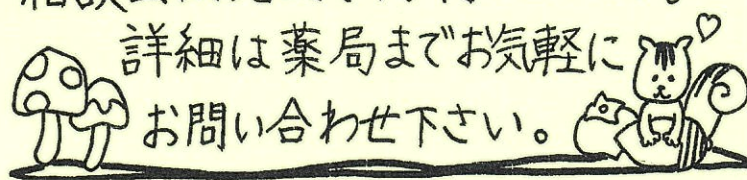 相談
詳細は薬局までお気軽に
お問い合わせ下さい。